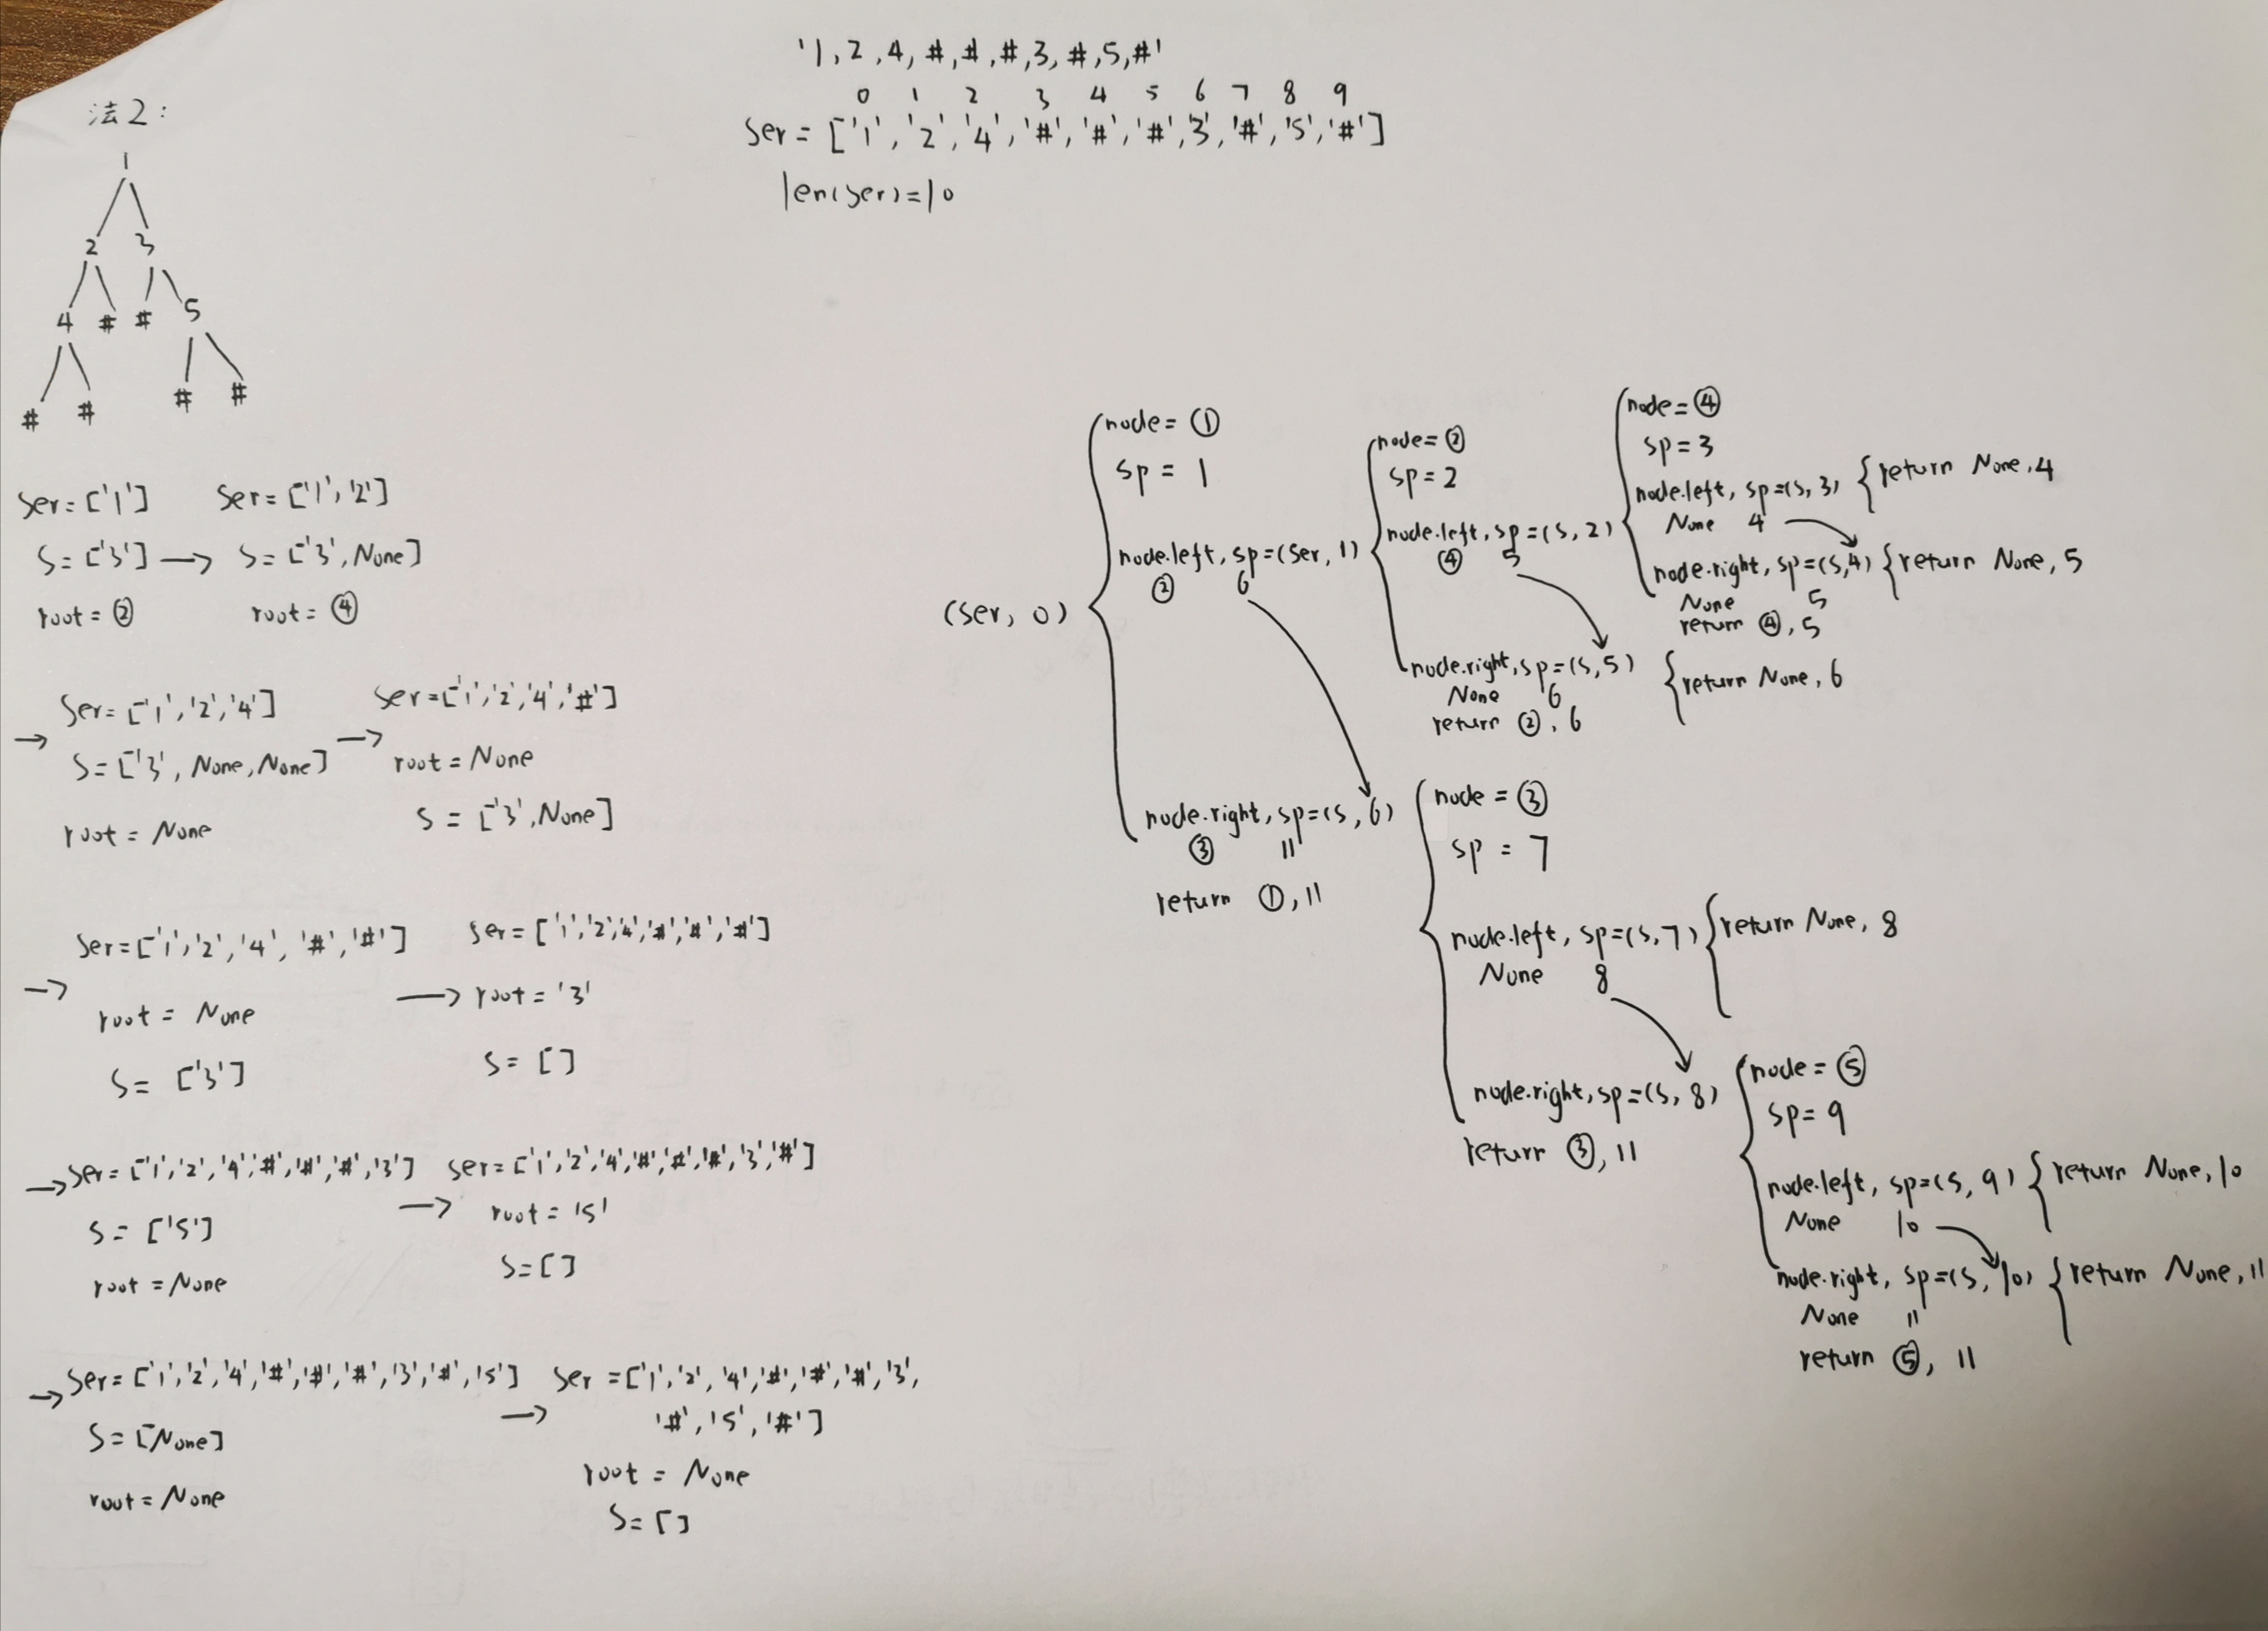 '1,2,4,#,#,#,3,#,5,#'
0 1 2 3 4 5 6 7 8 9
Ser = ['1','2','4','#','#','#','3','#','5','#']
len(ser)=10
法2:
1
2 3
4 # # 5
# # # #
Ser=['1'] Ser=['1','2']
S=['3'] → S=['3',None]
root=② root=④
→ Ser=['1','2','4'] → Ser=['1','2','4','#']
S=['3',None,None] root=None
root=None S=['3',None]
→ Ser=['1','2','4','#','#'] → Ser=['1','2','4','#','#','#']
root=None root='3'
S=['3'] S=[]
→ Ser=['1','2','4','#','#','#','3'] → Ser=['1','2','4','#','#','#','3','#']
S=['5'] root='5'
root=None S=[]
→ Ser=['1','2','4','#','#','#','3','#','5'] → Ser=['1','2','4','#','#','#','3',
'#','5','#']
S=[None] root=None
root=None S=[]
(Ser, 0)
node=①
sp=1
node.left, sp=(Ser, 1)
② 6
node.right, sp=(S, 6)
③ 11
return ①,11
node=②
sp=2
node.left, sp=(S, 2)
④ 5
node.right, sp=(S,5)
None 6
return ②,6
node=④
sp=3
node.left, sp=(S, 3) return None,4
None 4
node.right, sp=(S,4) return None,5
None 5
return ④,5
return None,6
node=③
sp=7
node.left, sp=(S,7) return None,8
None 8
node.right, sp=(S, 8)
return ③,11
node=⑤
sp=9
node.left, sp=(S, 9) return None,10
None 10
node.right, sp=(S, 10) return None,11
None 11
return ⑤, 11